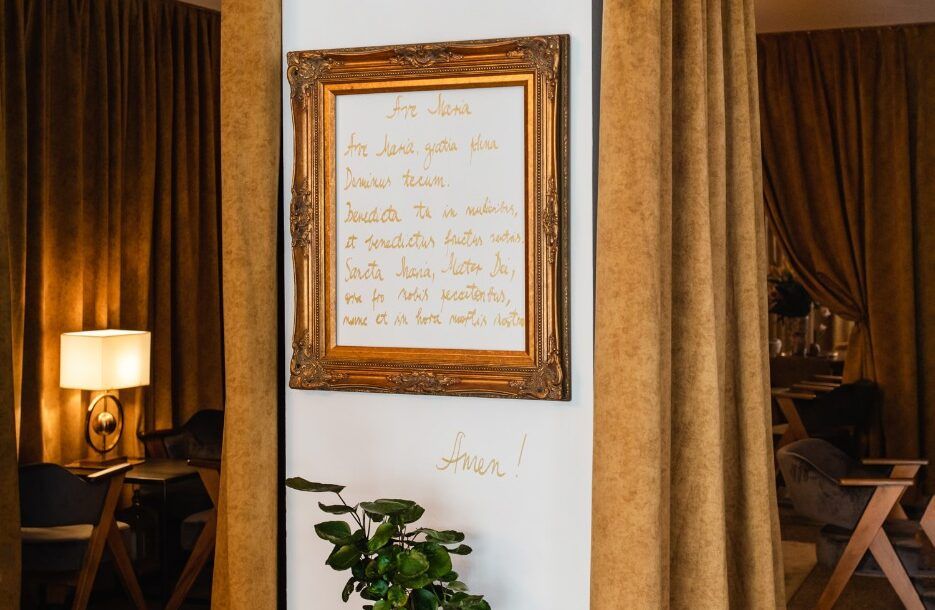 Ave Maria
Ave Maria, gratia plena
Dominus tecum.
Benedicta tu in mulieribus,
et benedictus fructus ventris
Sancta Maria, Mater Dei,
ora pro nobis peccatoribus,
nunc et in hora mortis nostra
Amen!